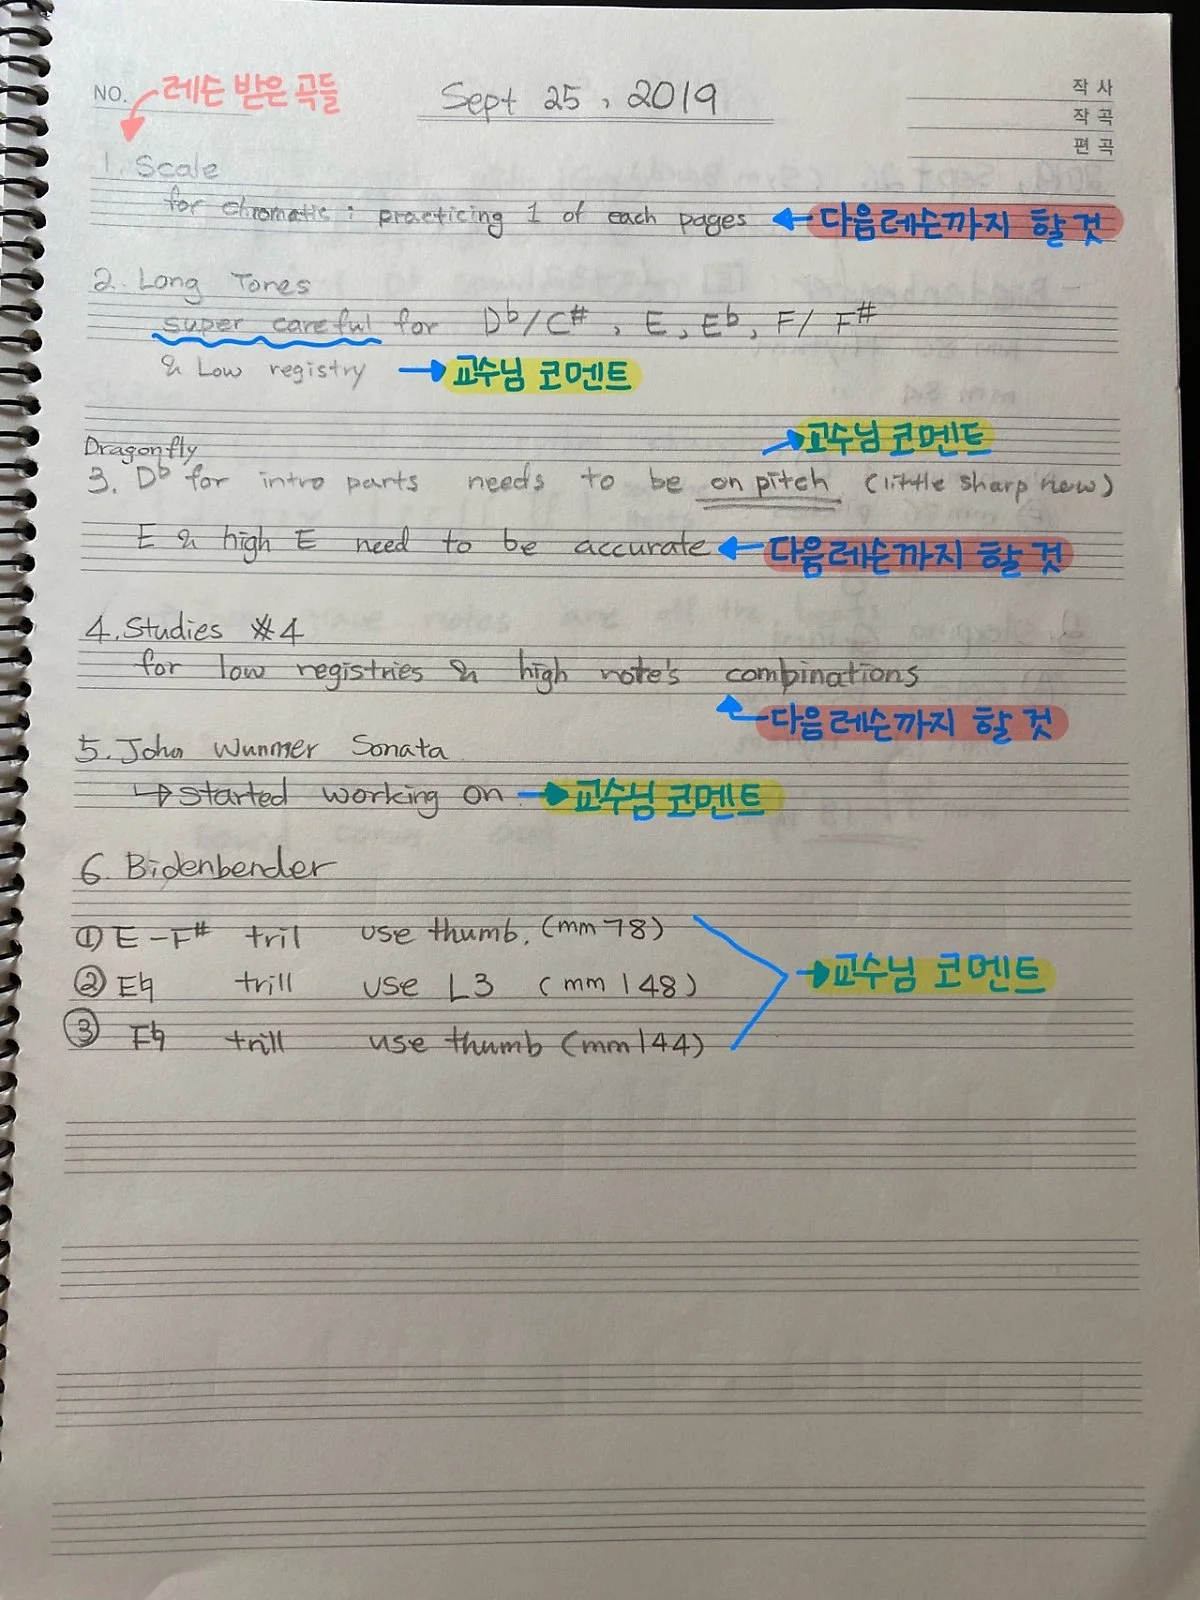 NO.
레슨 받은 곡들
Sept 25, 2019
작 사
작 곡
편 곡
1. Scale
for chromatic : practicing 1 of each pages ← 다음레슨까지 할 것
2. Long Tones
super careful for D♭/C#, E, E♭, F/ F#
& Low registry → 교수님 코멘트
교수님 코멘트
Dragonfly
3. D♭ for intro parts needs to be on pitch (little sharp now)
E & high E need to be accurate ← 다음레슨까지 할 것
4. Studies #4
for low registries & high note's combinations
다음레슨까지 할 것
5. John Wummer Sonata
↳ started working on → 교수님 코멘트
6. Bidenbender
① E - F# tril use thumb. (mm 78)
② E♮ trill use L3 (mm 148)
→ 교수님 코멘트
③ F♮ trill use thumb (mm 144)